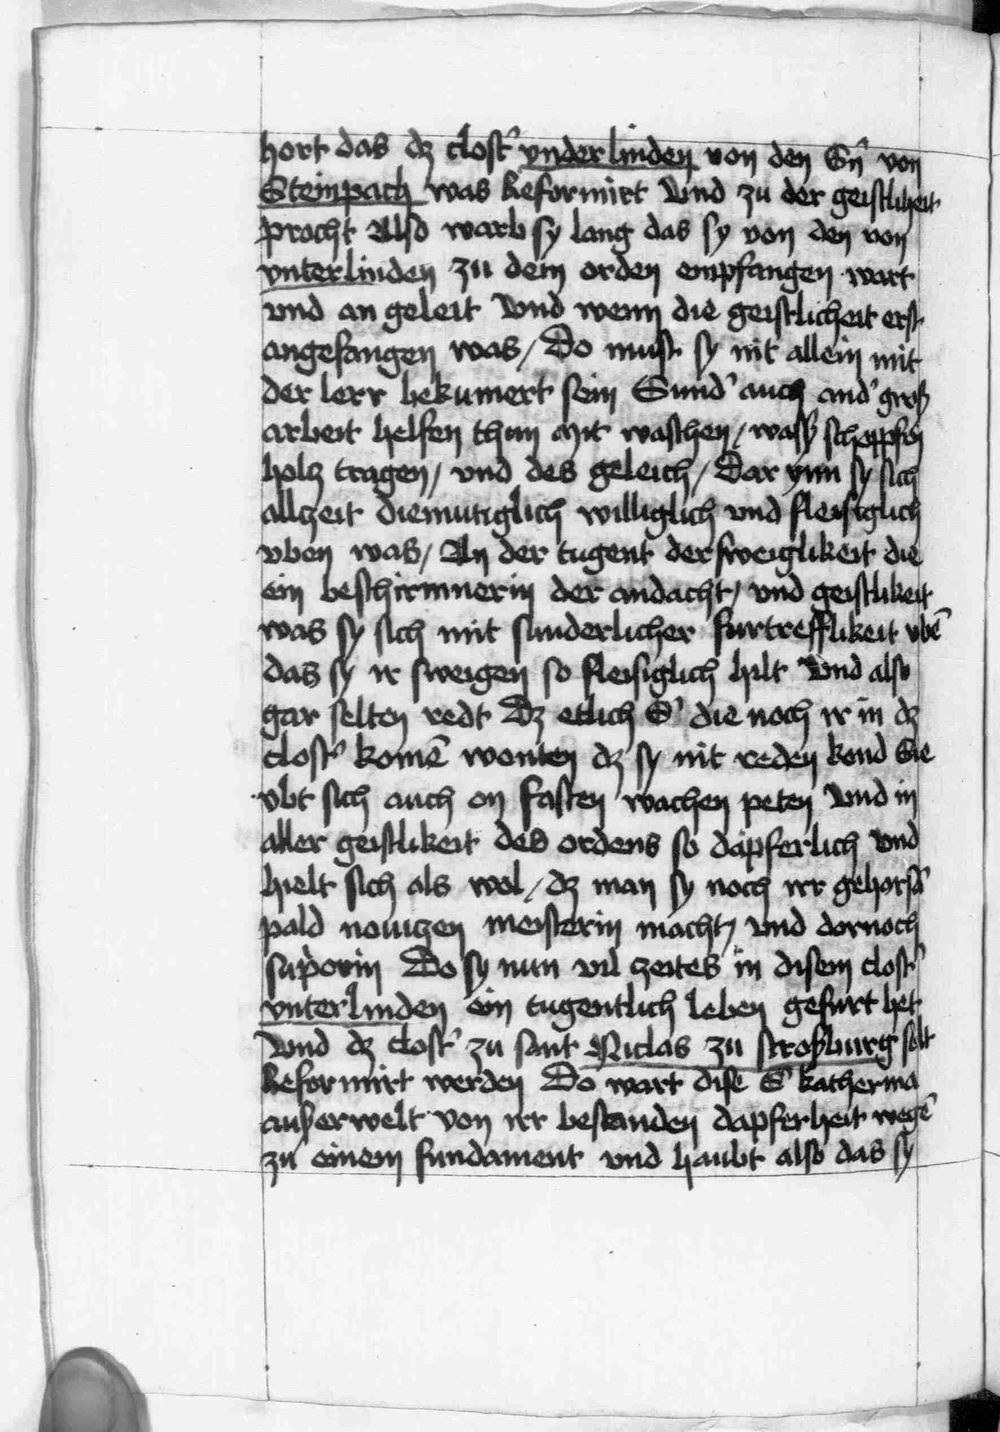 hort das dz clostˀ vnder linden von den Sn̄ von
Steinpach was Reformirt Vnd zu der geistliheit
procht Also warb sy lang das sy von den von
vnterlinden zu dem orden empfangen wart
vnd an geleit Vnd wenn die geistlicheit erst
angefangen was / Do must sy nit allein mit
der lerr bekumert sein Sundˀ auch andˀ groß
arbeit helfen thun Mit waschen / wassˀ schoppfen
holcz tragen / vnd des geleich / Dar ynn sy sich
allczeit diemutiglich williglich vnd fleisiglich
vben was / An der tugent der sweiglikeit die
ein beschirmmerin der andacht / vnd geistlikeit
was sy sich mit sunderlicher furtrefflikeit vbē
das sy ir sweigen so fleisiglich hilt Vnd also
gar selten redt Dz etlich Sˀ die noch ir in dz
clostˀ komē wonten dz sy nit reden kond Sie
vbt sich auch on fasten wachen peten Vnd in
aller geistlikeit des ordens so dapferlich vnd
hielt sich als wol / dz man sy noch irr gehorsā
pald nouiczen meisterin macht / vnd dornoch
supˀorin Do sy nun vil zeites in disem clostˀ
vnterlinden ein tugentlich leben gefurt het
Vnd dz clostˀ zu sant Niclas zu stroßburg solt
Reformirt werden Do wart dise Sˀ katherina
außerwelt von irr bestanden dapferheit wegē
zu einem fundament vnd haubt also das sy